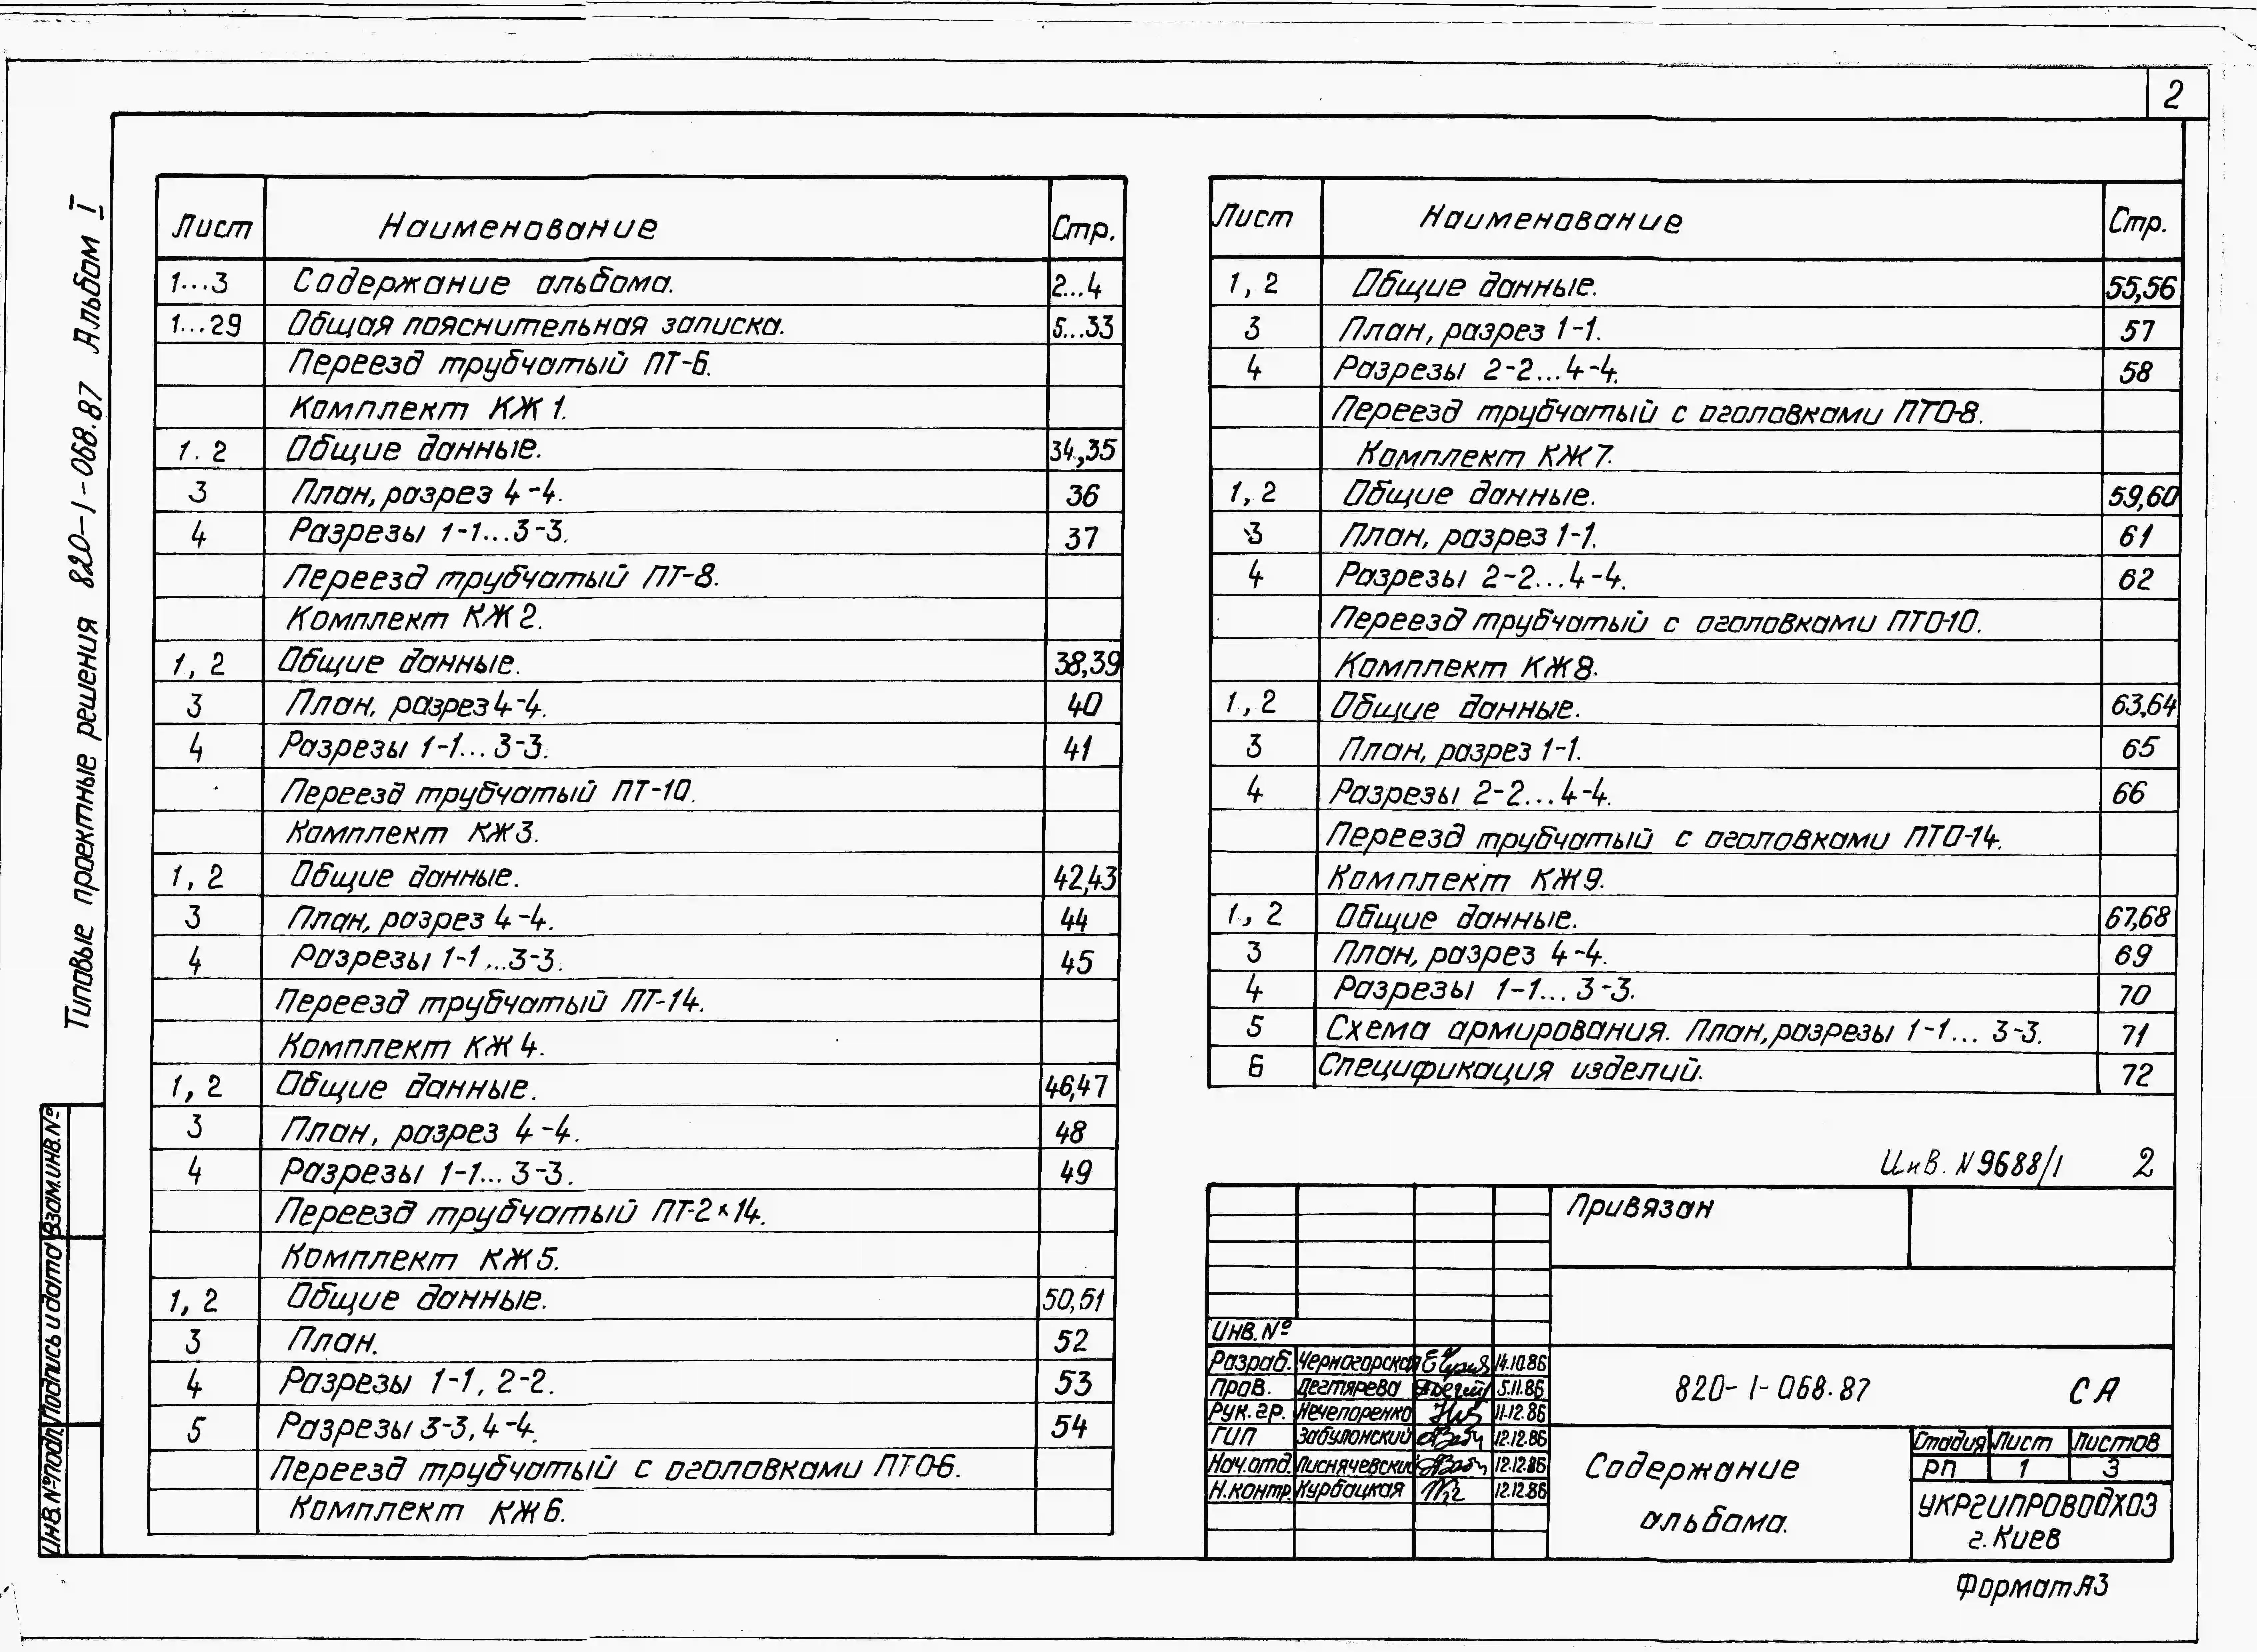 2
Типовые проектные решения 820-1-068.87 Альбом I
Лист Наименование Стр.
1...3 Содержание альбома. 2...4
1...29 Общая пояснительная записка. 5...33
Переезд трубчатый ПТ-6.
Комплект КЖ 1.
1. 2 Общие данные. 34,35
3 План, разрез 4-4. 36
4 Разрезы 1-1...3-3. 37
Переезд трубчатый ПТ-8.
Комплект КЖ 2.
1, 2 Общие данные. 38,39
3 План, разрез 4-4. 40
4 Разрезы 1-1...3-3. 41
Переезд трубчатый ПТ-10.
Комплект КЖ 3.
1, 2 Общие данные. 42,43
3 План, разрез 4-4. 44
4 Разрезы 1-1...3-3. 45
Переезд трубчатый ПТ-14.
Комплект КЖ 4.
1, 2 Общие данные. 46,47
3 План, разрез 4-4. 48
4 Разрезы 1-1...3-3. 49
Переезд трубчатый ПТ-2×14.
Комплект КЖ 5.
1, 2 Общие данные. 50,51
3 План. 52
4 Разрезы 1-1, 2-2. 53
5 Разрезы 3-3, 4-4. 54
Переезд трубчатый с оголовками ПТО-6.
Комплект КЖ 6.
Лист Наименование Стр.
1, 2 Общие данные. 55,56
3 План, разрез 1-1. 57
4 Разрезы 2-2...4-4. 58
Переезд трубчатый с оголовками ПТО-8.
Комплект КЖ 7.
1, 2 Общие данные. 59,60
3 План, разрез 1-1. 61
4 Разрезы 2-2...4-4. 62
Переезд трубчатый с оголовками ПТО-10.
Комплект КЖ 8.
1, 2 Общие данные. 63,64
3 План, разрез 1-1. 65
4 Разрезы 2-2...4-4. 66
Переезд трубчатый с оголовками ПТО-14.
Комплект КЖ 9.
1, 2 Общие данные. 67,68
3 План, разрез 4-4. 69
4 Разрезы 1-1...3-3. 70
5 Схема армирования. План, разрезы 1-1...3-3. 71
6 Спецификация изделий. 72
Инв. N 9688/1 2
Привязан
Инв. №
Разраб. Черногорская 14.10.86
Пров. Дегтярева 5.11.86
Рук. гр. Нечепоренко 11.12.86
ГИП Забулонский 12.12.86
Нач. отд. Лиснячевский 12.12.86
Н. контр. Курбацкая 12.12.86
820-1-068.87 СА
Содержание
альбома.
Стадия Лист Листов
РП 1 3
УКРГИПРОВОДХОЗ
г. Киев
Формат А3
Инв. № подл. Подпись и дата Взам. инв. №